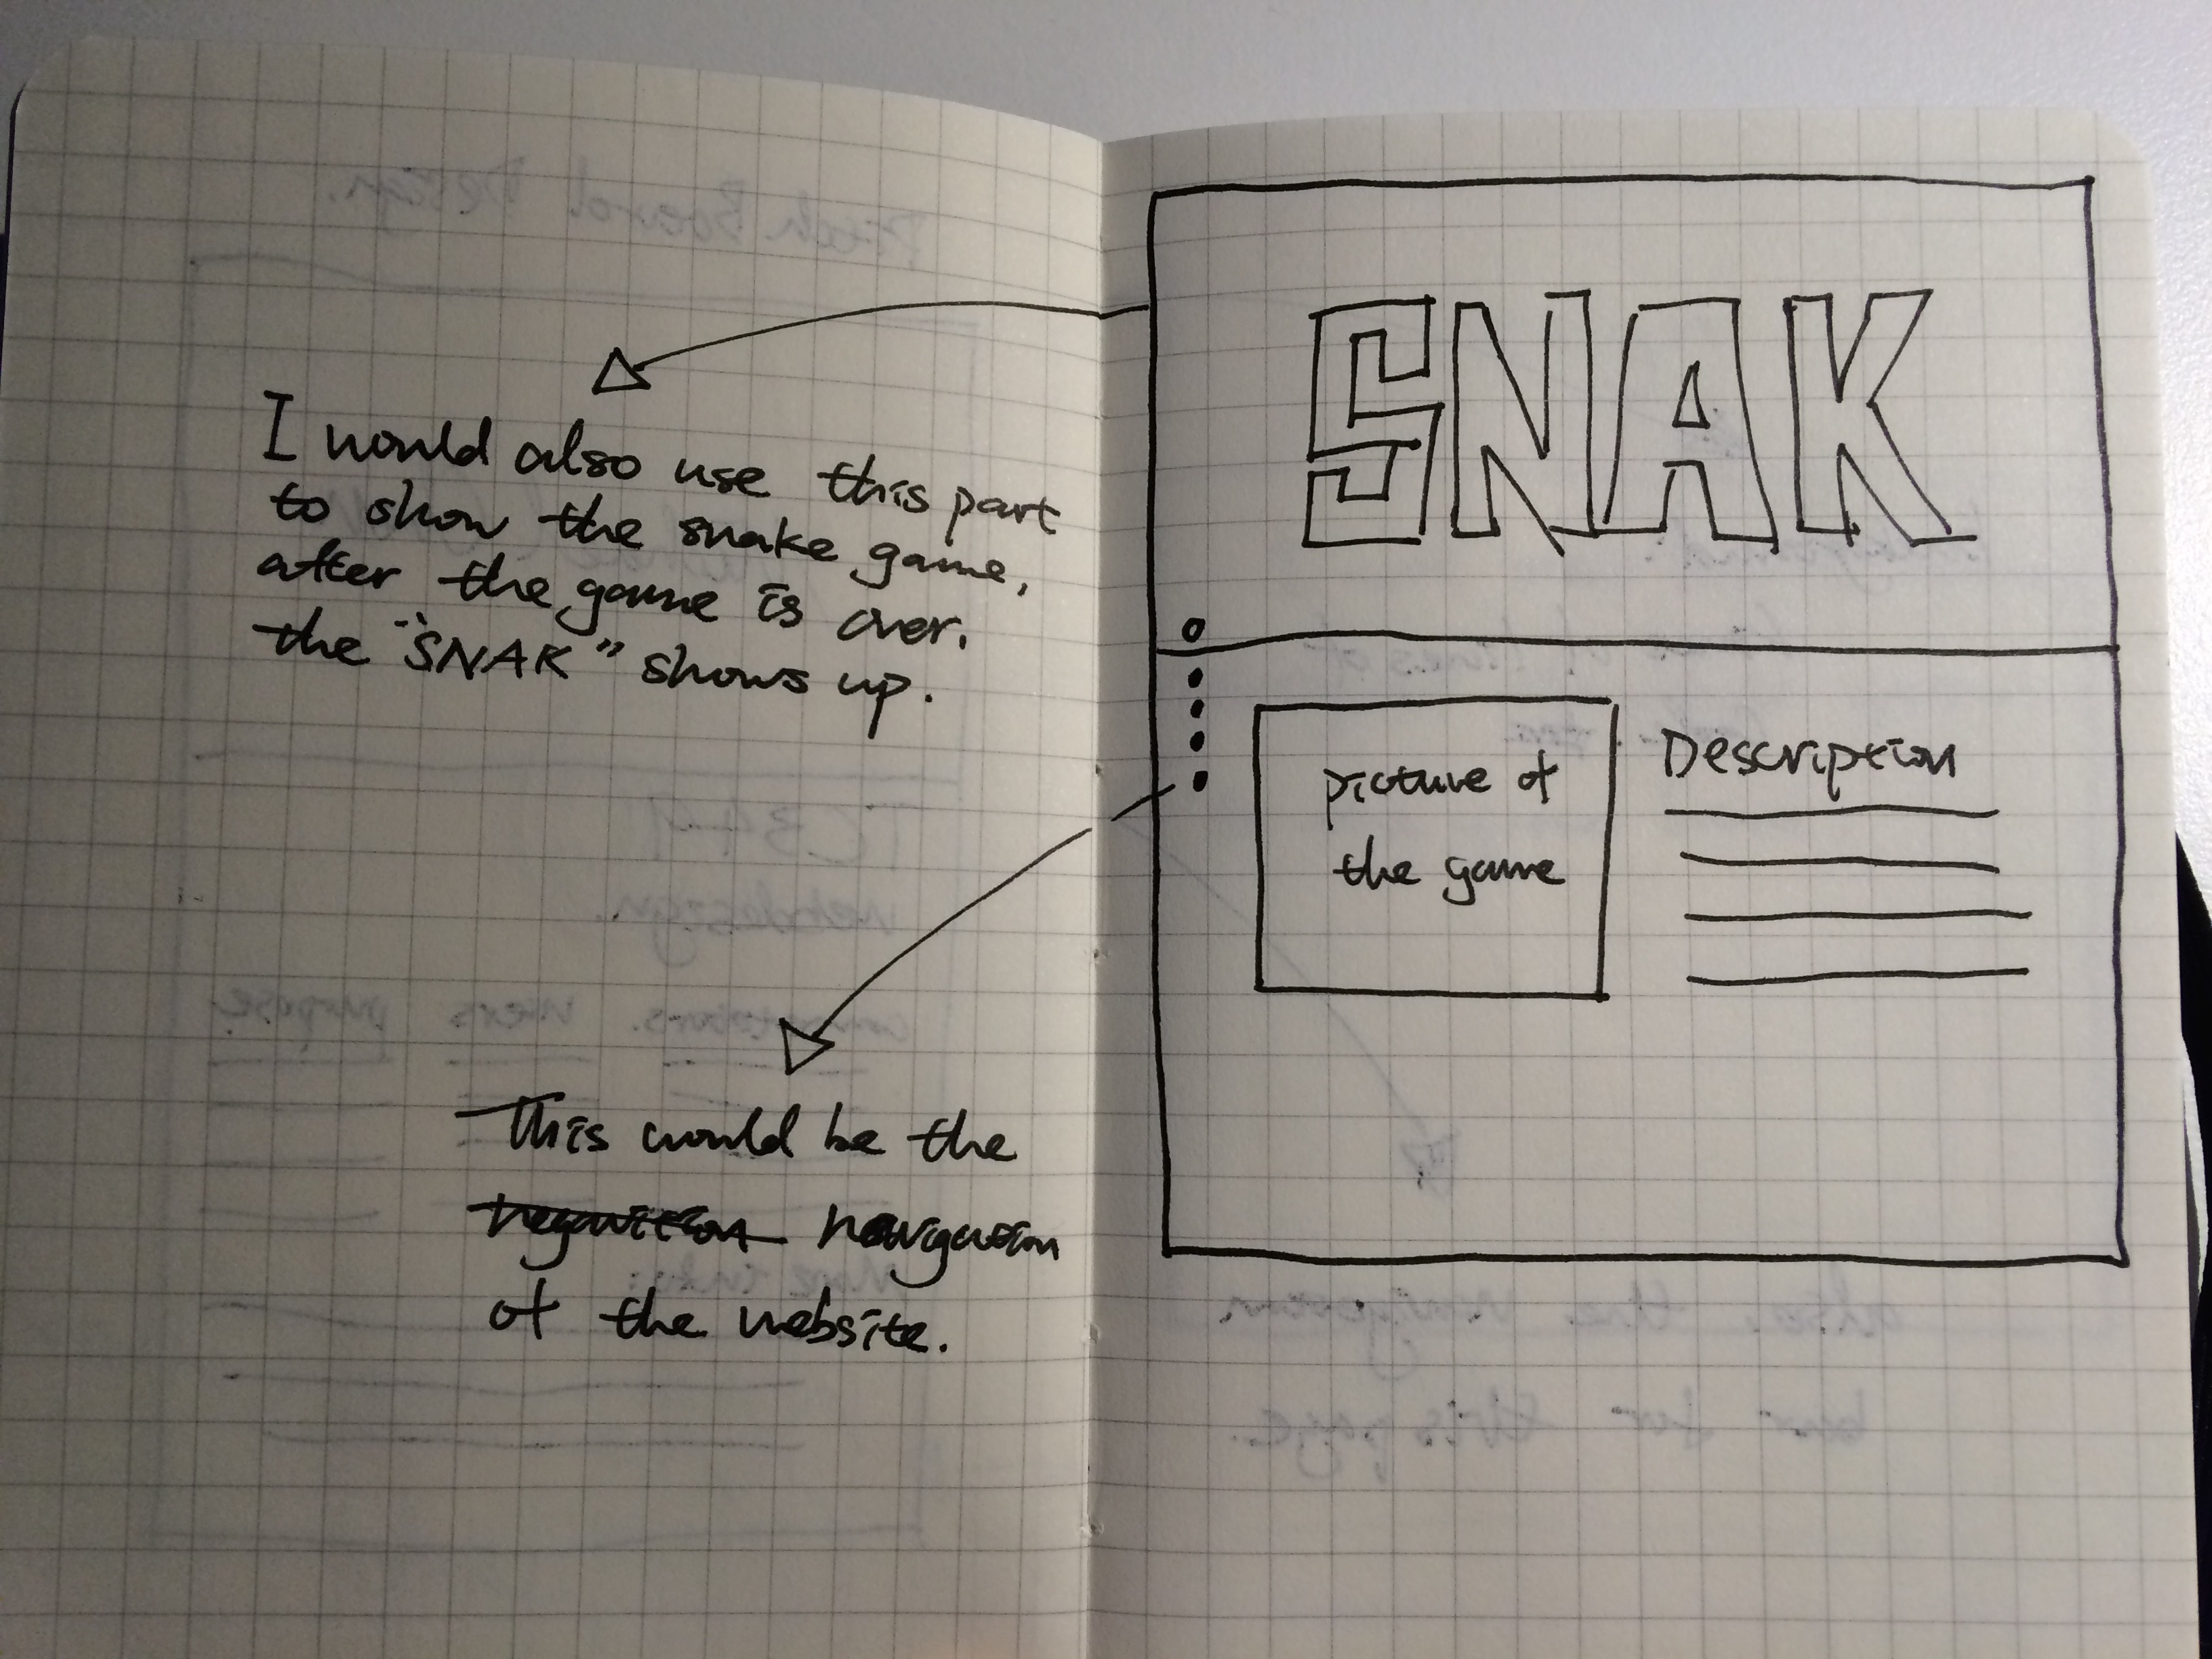 I would also use this part
to show the snake game,
after the game is over.
the "SNAK" shows up.
This would be the
negavition navigation
of the website.
SNAK
picture of
the game
Description